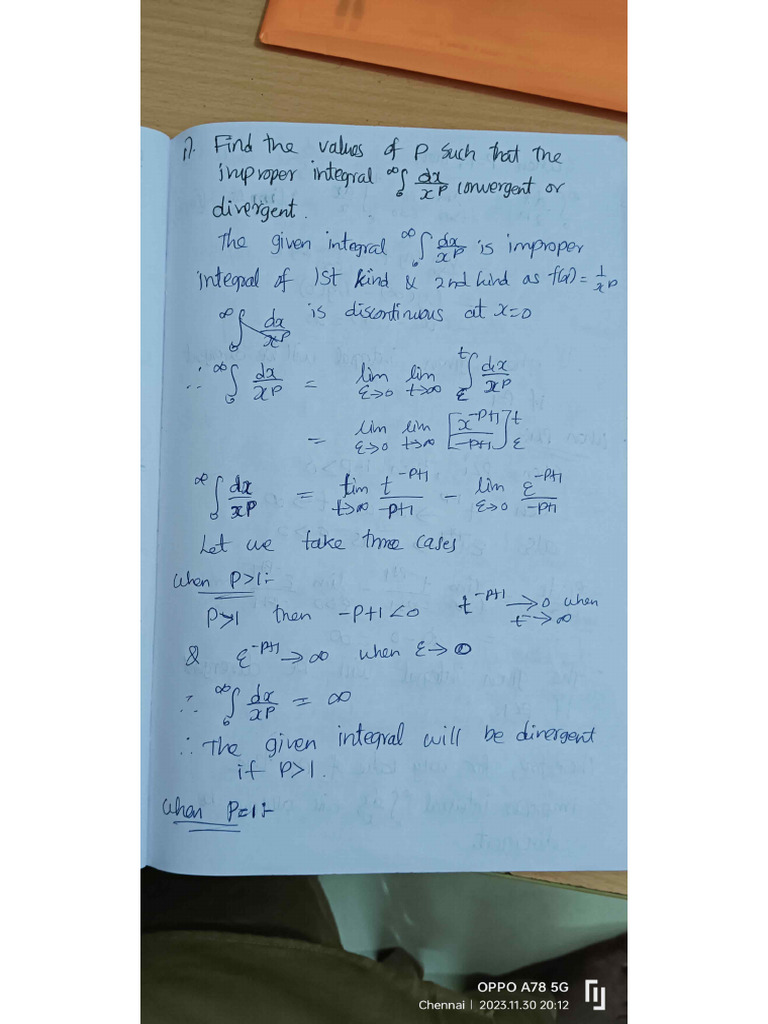 1). Find the values of P such that the
improper integral ∞∫0 dx/x^P convergent or
divergent.
The given integral ∞∫0 dx/x^P is improper
integral of 1st kind & 2nd kind as f(x) = 1/x^P
∞∫0 dx/x^P is discontinuous at x=0
∴ ∞∫0 dx/x^P = lim ε→0 lim t→∞ t∫ε dx/x^P
= lim ε→0 lim t→∞ [x^-P+1/-P+1]t ε
∞∫0 dx/x^P = lim t→∞ t^-P+1/-P+1 - lim ε→0 ε^-P+1/-P+1
Let we take three cases
when P>1:-
P>1 then -P+1<0 t^-P+1 → 0 when t→∞
& ε^-P+1 → ∞ when ε→0
∴ ∞∫0 dx/x^P = ∞
∴ The given integral will be divergent
if P>1.
when P=1:-
OPPO A78 5G
Chennai | 2023.11.30 20:12